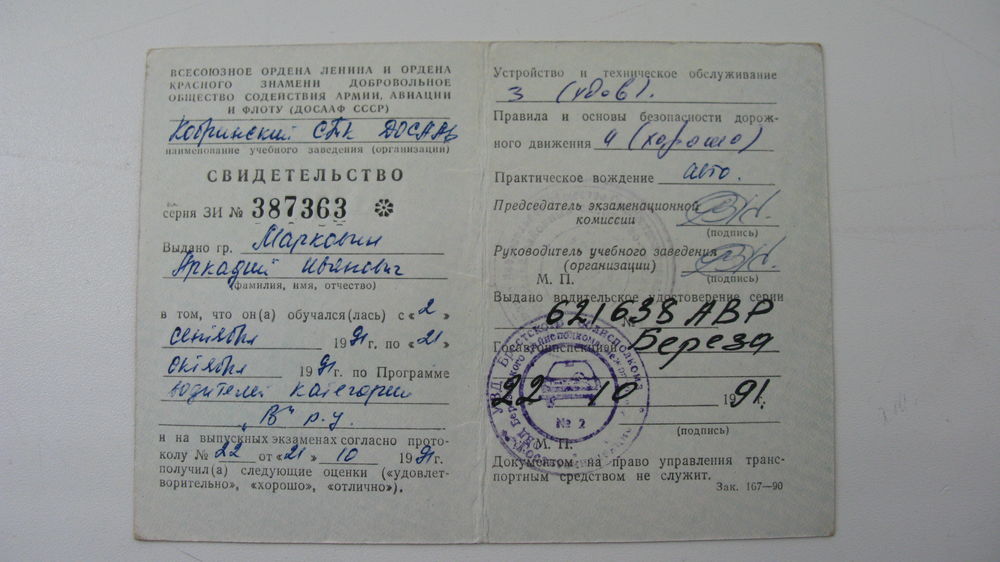 ВСЕСОЮЗНОЕ ОРДЕНА ЛЕНИНА И ОРДЕНА
КРАСНОГО ЗНАМЕНИ ДОБРОВОЛЬНОЕ
ОБЩЕСТВО СОДЕЙСТВИЯ АРМИИ, АВИАЦИИ
И ФЛОТУ (ДОСААФ СССР)
Кобринский СТК ДОСААФ
наименование учебного заведения (организации)
СВИДЕТЕЛЬСТВО
серия ЗИ № 387363
Выдано гр. Марковин
Аркадий Иванович
(фамилия, имя, отчество)
в том, что он(а) обучался(лась) с «2»
сентября 1991г. по «21»
октября 1991г. по Программе
водителей категории
„В" р.у.
и на выпускных экзаменах согласно прото-
колу № 22 от «21» 10 1991г.
получил(а) следующие оценки («удовлет-
ворительно», «хорошо», «отлично»).
Устройство и техническое обслуживание
3 (удов).
Правила и основы безопасности дорож-
ного движения 4 (хорошо)
Практическое вождение авто.
Председатель экзаменационной
комиссии
(подпись)
Руководитель учебного заведения
(организации)
М. П. (подпись)
Выдано водительское удостоверение серии
№ 621638 АВР
Госавтоинспекцией Береза
22 10 1991г.
(подпись)
М. П.
Документом на право управления транс-
портным средством не служит.
Зак. 167—90
УВД Брестского облисполкома
№ 2